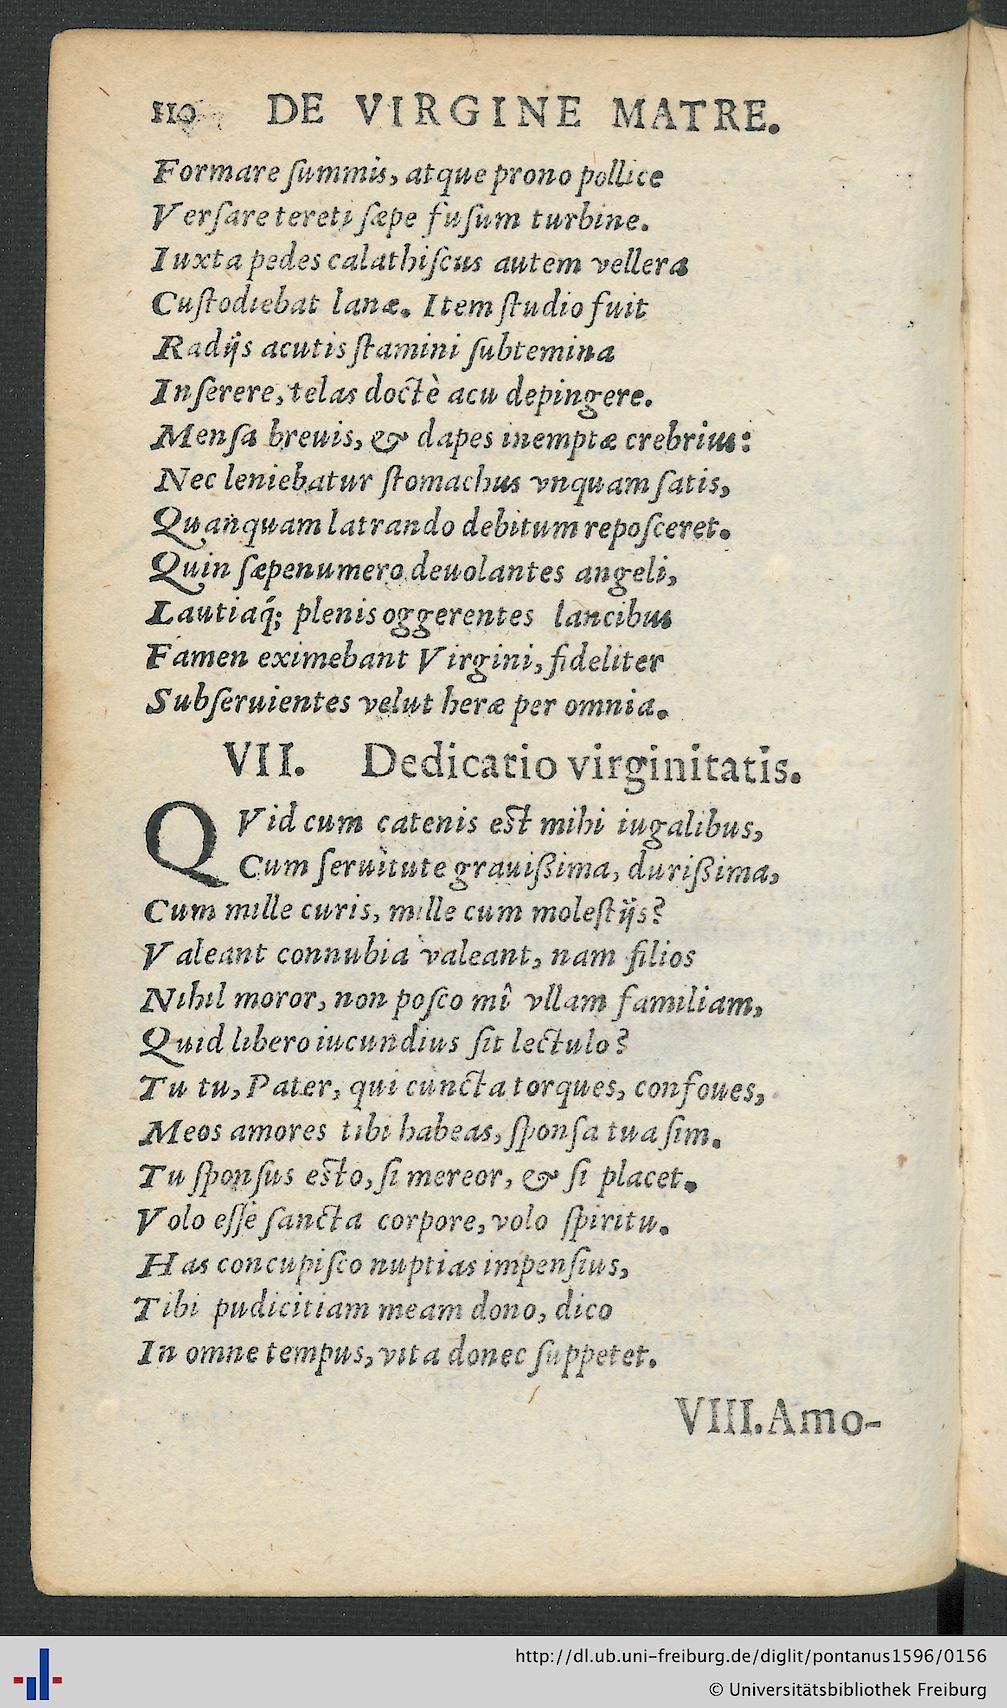 110 DE VIRGINE MATRE.
Formare ſummis, atque prono pollice
Verſare tereti ſæpe fuſum turbine.
Iuxta pedes calathiſcus autem vellera
Cuſtodiebat lanæ. Item ſtudio fuit
Radijs acutis ſtamini ſubtemina
Inſerere, telas doctè acu depingere.
Menſa breuis, & dapes inemptæ crebrius:
Nec leniebatur ſtomachus vnquam ſatis,
Quanquam latrando debitum repoſceret.
Quin ſæpenumero deuolantes angeli,
Lautiaq́; plenis oggerentes lancibus
Famen eximebant Virgini, fideliter
Subſeruientes velut heræ per omnia.
VII. Dedicatio virginitatis.
QVid cum catenis eſt mihi iugalibus,
Cum ſeruitute grauißima, durißima,
Cum mille curis, mille cum moleſtijs?
Valeant connubia valeant, nam filios
Nihil moror, non poſco mî vllam familiam,
Quid libero iucundius ſit lectulo?
Tu tu, Pater, qui cuncta torques, confoues,
Meos amores tibi habeas, ſponſa tua ſim.
Tu ſponſus eſto, ſi mereor, & ſi placet.
Volo eſſe ſancta corpore, volo ſpiritu.
Has concupiſco nuptias impenſius,
Tibi pudicitiam meam dono, dico
In omne tempus, vita donec ſuppetet.
VIII. Amo-
http://dl.ub.uni-freiburg.de/diglit/pontanus1596/0156
© Universitätsbibliothek Freiburg